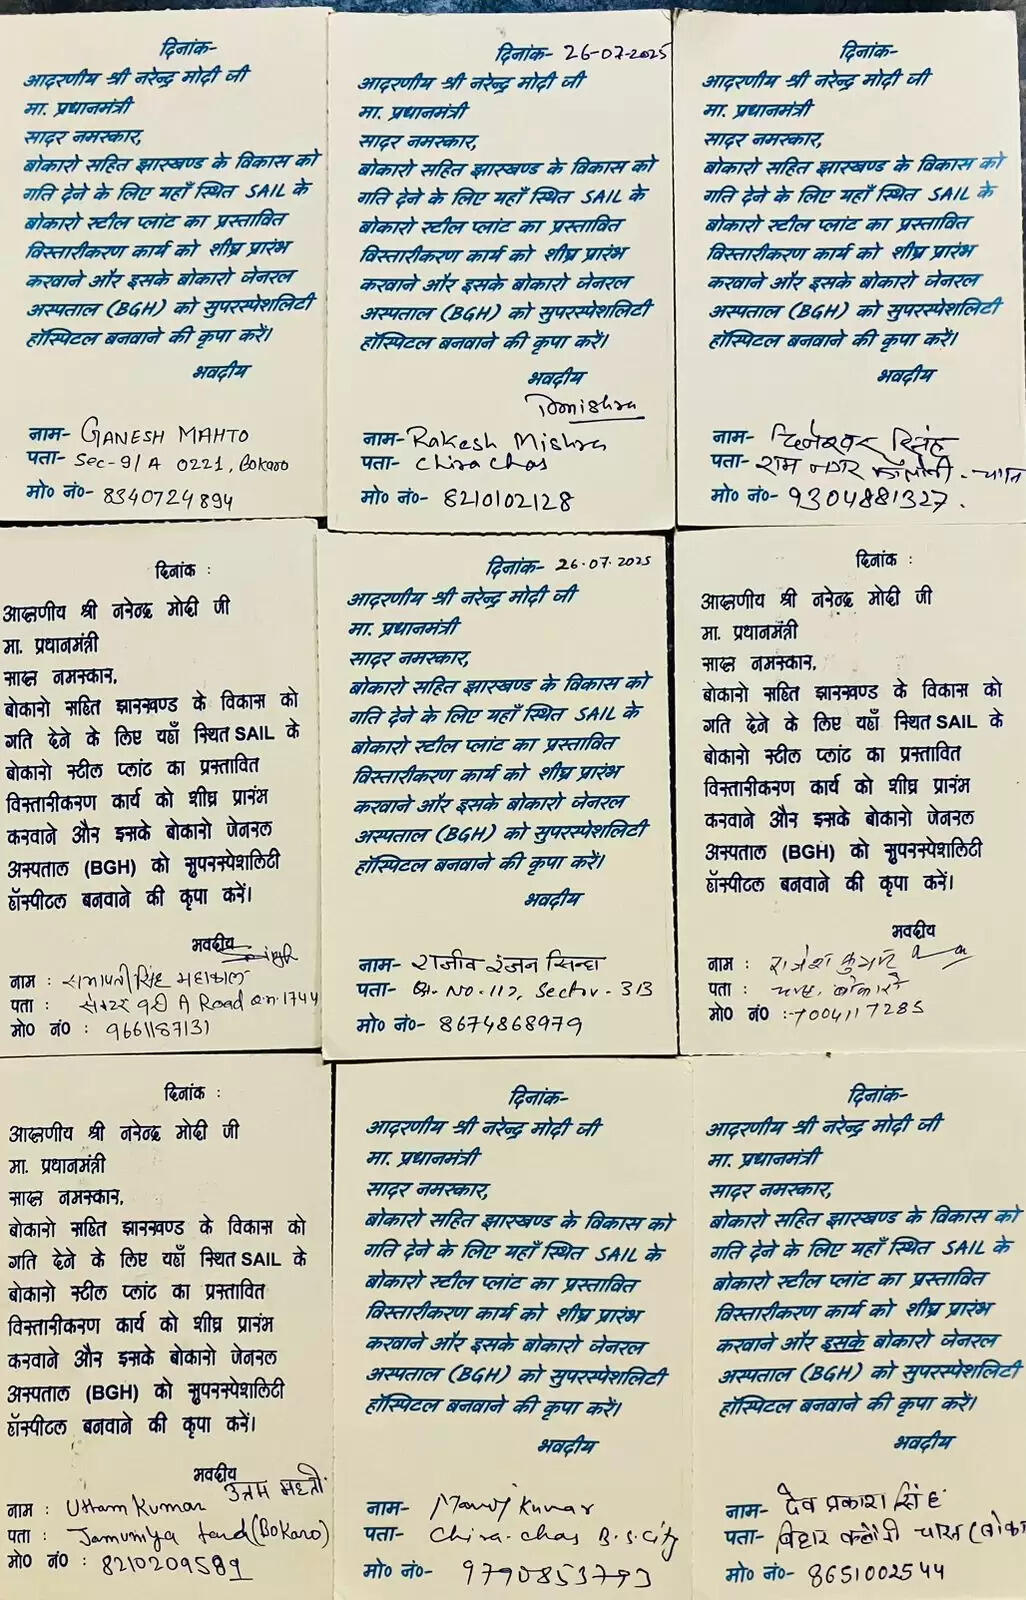 दिनांक-
आदरणीय श्री नरेन्द्र मोदी जी
मा. प्रधानमंत्री
सादर नमस्कार,
बोकारो सहित झारखण्ड के विकास को
गति देने के लिए यहाँ स्थित SAIL के
बोकारो स्टील प्लांट का प्रस्तावित
विस्तारीकरण कार्य को शीघ्र प्रारंभ
करवाने और इसके बोकारो जेनरल
अस्पताल (BGH) को सुपरस्पेशलिटी
हॉस्पिटल बनवाने की कृपा करें।
भवदीय
नाम- GANESH MAHTO
पता- Sec-9/A 0221, Bokaro
मो० नं०- 8340724894
दिनांक- 26-07-2025
आदरणीय श्री नरेन्द्र मोदी जी
मा. प्रधानमंत्री
सादर नमस्कार,
बोकारो सहित झारखण्ड के विकास को
गति देने के लिए यहाँ स्थित SAIL के
बोकारो स्टील प्लांट का प्रस्तावित
विस्तारीकरण कार्य को शीघ्र प्रारंभ
करवाने और इसके बोकारो जेनरल
अस्पताल (BGH) को सुपरस्पेशलिटी
हॉस्पिटल बनवाने की कृपा करें।
भवदीय
नाम- Rakesh Mishra
पता- Chira Chas
मो० नं०- 8210102128
दिनांक-
आदरणीय श्री नरेन्द्र मोदी जी
मा. प्रधानमंत्री
सादर नमस्कार,
बोकारो सहित झारखण्ड के विकास को
गति देने के लिए यहाँ स्थित SAIL के
बोकारो स्टील प्लांट का प्रस्तावित
विस्तारीकरण कार्य को शीघ्र प्रारंभ
करवाने और इसके बोकारो जेनरल
अस्पताल (BGH) को सुपरस्पेशलिटी
हॉस्पिटल बनवाने की कृपा करें।
भवदीय
नाम- सिंह
पता- राम नगर कॉलोनी -
मो० नं०- 9304881327.
दिनांक :
आदरणीय श्री नरेन्द्र मोदी जी
मा. प्रधानमंत्री
सादर नमस्कार,
बोकारो सहित झारखण्ड के विकास को
गति देने के लिए यहाँ स्थित SAIL के
बोकारो स्टील प्लांट का प्रस्तावित
विस्तारीकरण कार्य को शीघ्र प्रारंभ
करवाने और इसके बोकारो जेनरल
अस्पताल (BGH) को सुपरस्पेशलिटी
हॉस्पीटल बनवाने की कृपा करें।
भवदीय
नाम : सभापती सिंह
पता : सेक्टर 9 A Road Q.N. 1744
मो० नं० : 9661187131
दिनांक- 26.07.2025
आदरणीय श्री नरेन्द्र मोदी जी
मा. प्रधानमंत्री
सादर नमस्कार,
बोकारो सहित झारखण्ड के विकास को
गति देने के लिए यहाँ स्थित SAIL के
बोकारो स्टील प्लांट का प्रस्तावित
विस्तारीकरण कार्य को शीघ्र प्रारंभ
करवाने और इसके बोकारो जेनरल
अस्पताल (BGH) को सुपरस्पेशलिटी
हॉस्पिटल बनवाने की कृपा करें।
भवदीय
नाम- राजीव रंजन सिन्हा
पता- Qr. No.-112, Sector-3B
मो० नं०- 8674868979
दिनांक :
आदरणीय श्री नरेन्द्र मोदी जी
मा. प्रधानमंत्री
सादर नमस्कार,
बोकारो सहित झारखण्ड के विकास को
गति देने के लिए यहाँ स्थित SAIL के
बोकारो स्टील प्लांट का प्रस्तावित
विस्तारीकरण कार्य को शीघ्र प्रारंभ
करवाने और इसके बोकारो जेनरल
अस्पताल (BGH) को सुपरस्पेशलिटी
हॉस्पीटल बनवाने की कृपा करें।
भवदीय
नाम :
पता : चास, बोकारो
मो० नं० : 7004117285
दिनांक :
आदरणीय श्री नरेन्द्र मोदी जी
मा. प्रधानमंत्री
सादर नमस्कार,
बोकारो सहित झारखण्ड के विकास को
गति देने के लिए यहाँ स्थित SAIL के
बोकारो स्टील प्लांट का प्रस्तावित
विस्तारीकरण कार्य को शीघ्र प्रारंभ
करवाने और इसके बोकारो जेनरल
अस्पताल (BGH) को सुपरस्पेशलिटी
हॉस्पीटल बनवाने की कृपा करें।
भवदीय
उत्तम महतो
नाम : Uttam Kumar
पता : Jamuniya tand (Bokaro)
मो० नं० : 8210209589
दिनांक-
आदरणीय श्री नरेन्द्र मोदी जी
मा. प्रधानमंत्री
सादर नमस्कार,
बोकारो सहित झारखण्ड के विकास को
गति देने के लिए यहाँ स्थित SAIL के
बोकारो स्टील प्लांट का प्रस्तावित
विस्तारीकरण कार्य को शीघ्र प्रारंभ
करवाने और इसके बोकारो जेनरल
अस्पताल (BGH) को सुपरस्पेशलिटी
हॉस्पिटल बनवाने की कृपा करें।
भवदीय
नाम- Manoj Kumar
पता- Chira-chas B.S.City
मो० नं०- 9790853793
दिनांक-
आदरणीय श्री नरेन्द्र मोदी जी
मा. प्रधानमंत्री
सादर नमस्कार,
बोकारो सहित झारखण्ड के विकास को
गति देने के लिए यहाँ स्थित SAIL के
बोकारो स्टील प्लांट का प्रस्तावित
विस्तारीकरण कार्य को शीघ्र प्रारंभ
करवाने और इसके बोकारो जेनरल
अस्पताल (BGH) को सुपरस्पेशलिटी
हॉस्पिटल बनवाने की कृपा करें।
भवदीय
नाम- देव प्रकाश सिंह
पता- बिहार कलोनी चास (बोका
मो० नं०- 8651002544